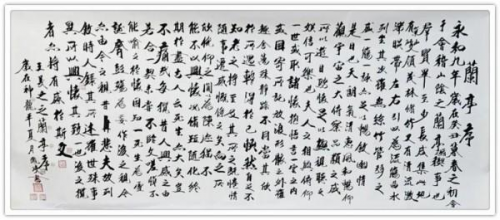 蘭亭序
永和九年歲在癸丑暮春之初會
于會稽山陰之蘭亭修禊事也
羣賢畢至少長咸集此地
有崇山峻領茂林脩竹又有清流激
湍暎帶左右引以爲流觴曲水
列坐其次雖無絲竹管弦之
盛一觴一詠亦足以暢敘幽情
是日也天朗氣清惠風和暢仰
觀宇宙之大俯察品類之盛
所以遊目騁懷足以極視聽之娛
信可樂也夫人之相與俯仰
一世或取諸懷抱悟言一室之內
或因寄所託放浪形骸之外雖
趣舍萬殊靜躁不同當其欣
於所遇蹔得於己快然自足不
知老之將至及其所之既惓情
隨事遷感慨係之矣向之所
欣俛仰之間以爲陳迹猶不
能不以之興懷況脩短隨化終
期於盡古人云死生亦大矣豈
不痛哉每攬昔人興感之由
若合一契未嘗不臨文嗟悼不
能喻之於懷固知一死生爲虛
誕齊彭殤爲妄作後之視今
亦由今之視昔悲夫故列
敘時人錄其所述雖世殊事
異所以興懷其致一也後之攬
者亦將有感於斯文
王羲之之蘭亭序